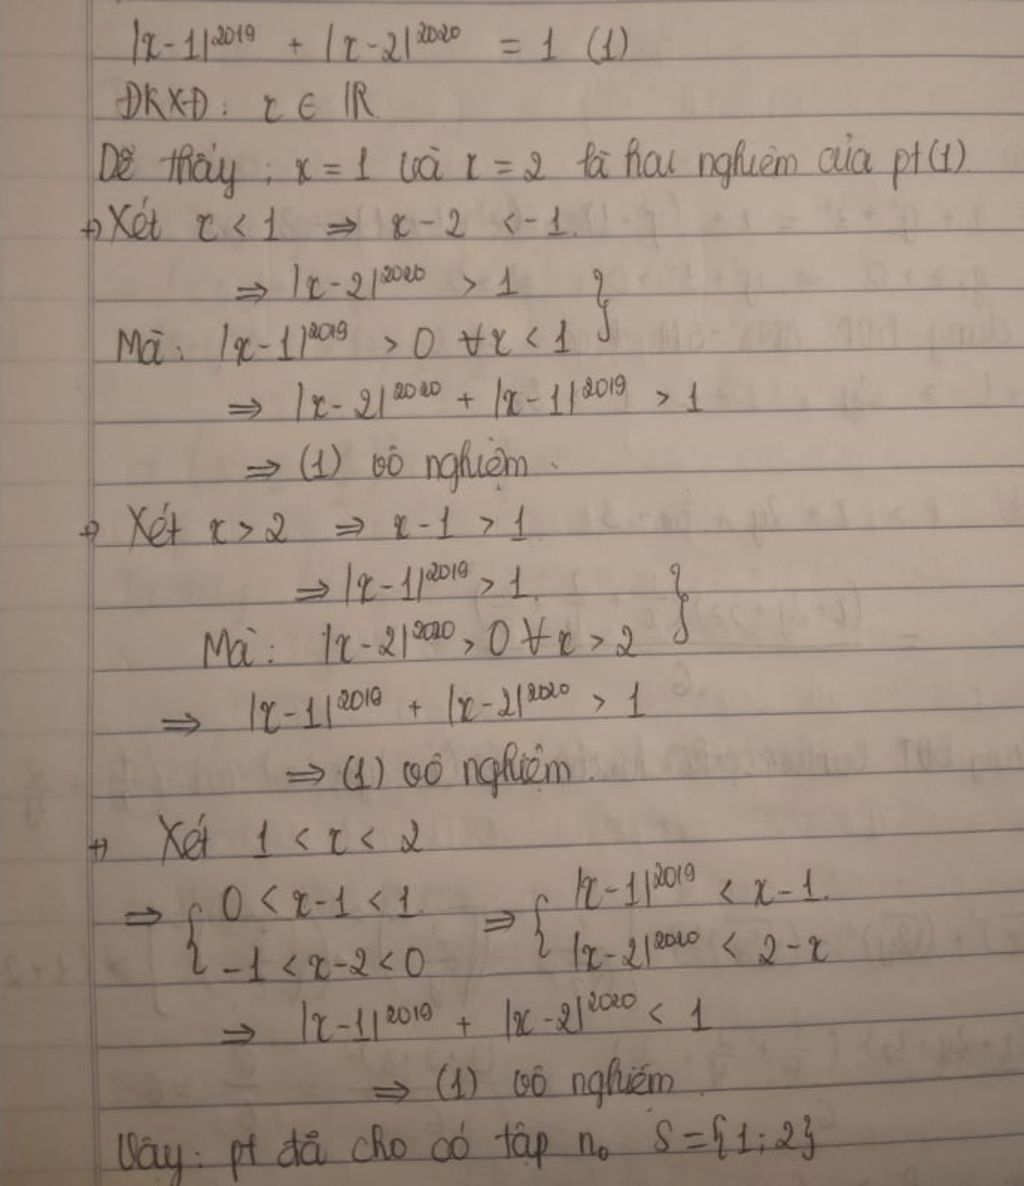 |x-1|²⁰¹⁹ + |x-2|²⁰²⁰ = 1 (1)
ĐKXĐ: x ∈ ℝ
Dễ thấy: x = 1 và x = 2 là hai nghiệm của pt(1)
+) Xét x < 1 ⇒ x - 2 < -1.
⇒ |x-2|²⁰²⁰ > 1 }
Mà: |x-1|²⁰¹⁹ > 0 ∀x < 1
⇒ |x-2|²⁰²⁰ + |x-1|²⁰¹⁹ > 1
⇒ (1) vô nghiệm.
+) Xét x > 2 ⇒ x - 1 > 1
⇒ |x-1|²⁰¹⁹ > 1. }
Mà: |x-2|²⁰²⁰ > 0 ∀x > 2
⇒ |x-1|²⁰¹⁹ + |x-2|²⁰²⁰ > 1
⇒ (1) vô nghiệm.
+) Xét 1 < x < 2
⇒ { 0 < x-1 < 1. ⇒ { |x-1|²⁰¹⁹ < x-1.
-1 < x-2 < 0 |x-2|²⁰²⁰ < 2-x
⇒ |x-1|²⁰¹⁹ + |x-2|²⁰²⁰ < 1
⇒ (1) vô nghiệm
Vậy: pt đã cho có tập n₀ S = {1;2}